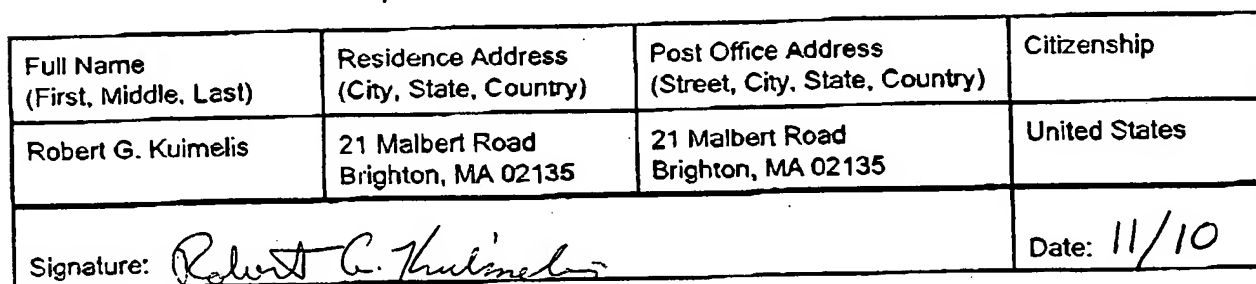 Full Name
(First, Middle, Last)
Residence Address
(City, State, Country)
Post Office Address
(Street, City, State, Country)
Citizenship
Robert G. Kuimelis
21 Malbert Road
Brighton, MA 02135
21 Malbert Road
Brighton, MA 02135
United States
Signature: Robert G. Kuimelis
Date: 11/10